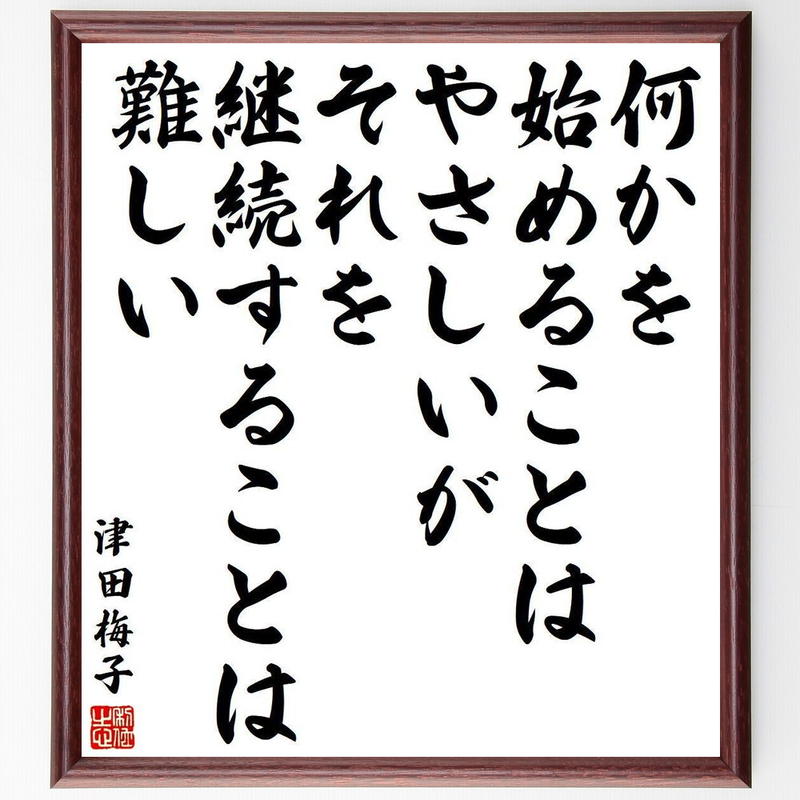 何かを
始めることは
やさしいが
それを
継続することは
難しい
津田梅子